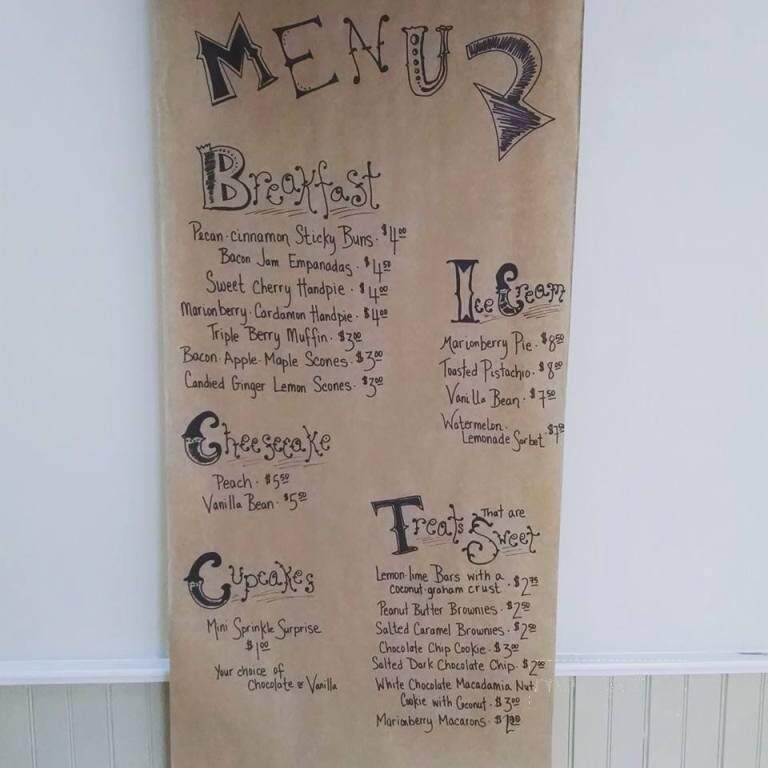 MENU
Breakfast
Pecan-cinnamon Sticky Buns. $4.00
Bacon Jam Empanadas. $4.50
Sweet Cherry Handpie. $4.00
Marionberry. Cardamon Handpie. $4.00
Triple Berry Muffin. $3.00
Bacon. Apple. Maple Scones. $3.00
Candied Ginger Lemon Scones. $3.00
Ice Cream
Marionberry Pie. $8.50
Toasted Pistachio. $8.00
Vanilla Bean. $7.50
Watermelon.
Lemonade Sorbet
Cheesecake
Peach. $5.50
Vanilla Bean. $5.50
Cupcakes
Mini Sprinkle Surprise
$1.00
Your choice of
Chocolate or Vanilla
Treats That are
Sweet
Lemon-lime Bars with a
coconut-graham crust. $2.75
Peanut Butter Brownies. $2.50
Salted Caramel Brownies. $2.50
Chocolate Chip Cookie. $3.00
Salted Dark Chocolate Chip.
White Chocolate Macadamia Nut
Cookie with Coconut. $3.00
Marionberry Macarons.